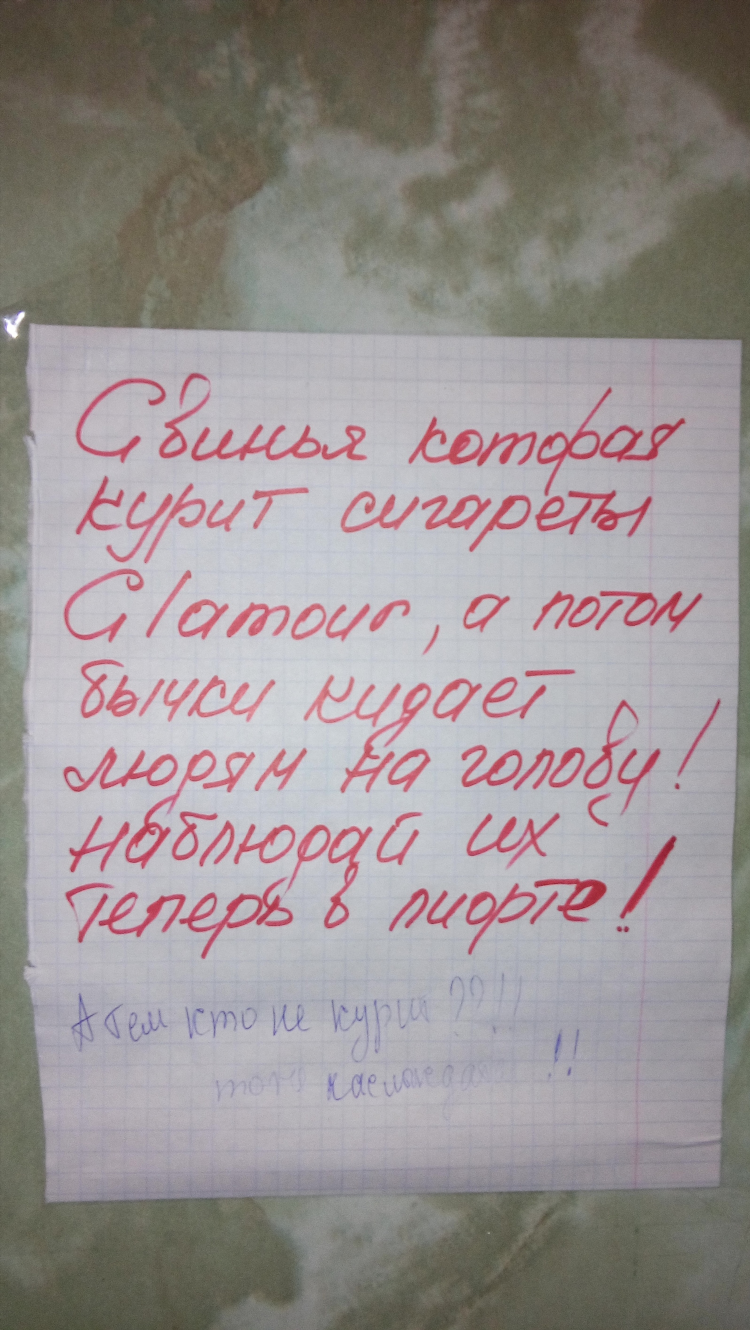 Свинья которая
курит сигареты
Glamour, а потом
бычки кидает
людям на голову!
Наблюдай их
теперь в лифте!
А тем кто не курит ??!!
тоже наслаждаться !!